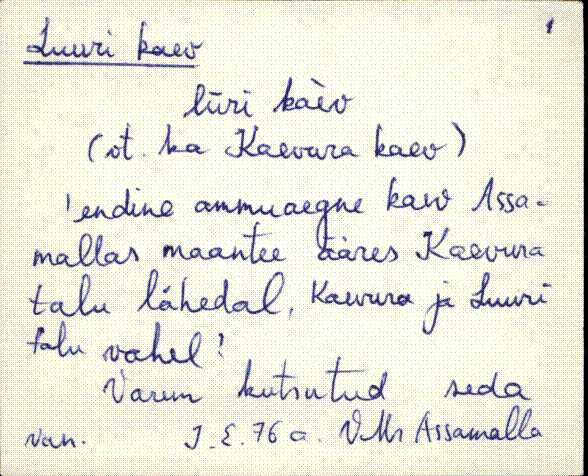 1
Luuri kaev
lūri kàev
(vt. ka Kaevura kaev)
'endine ammuaegne kaev Assa-
mallas maantee ääres Kaevura
talu lähedal, Kaevura ja Luuri
talu vahel'
Varem kutsutud seda
van. J.E. 76 a. VMr Assamalla